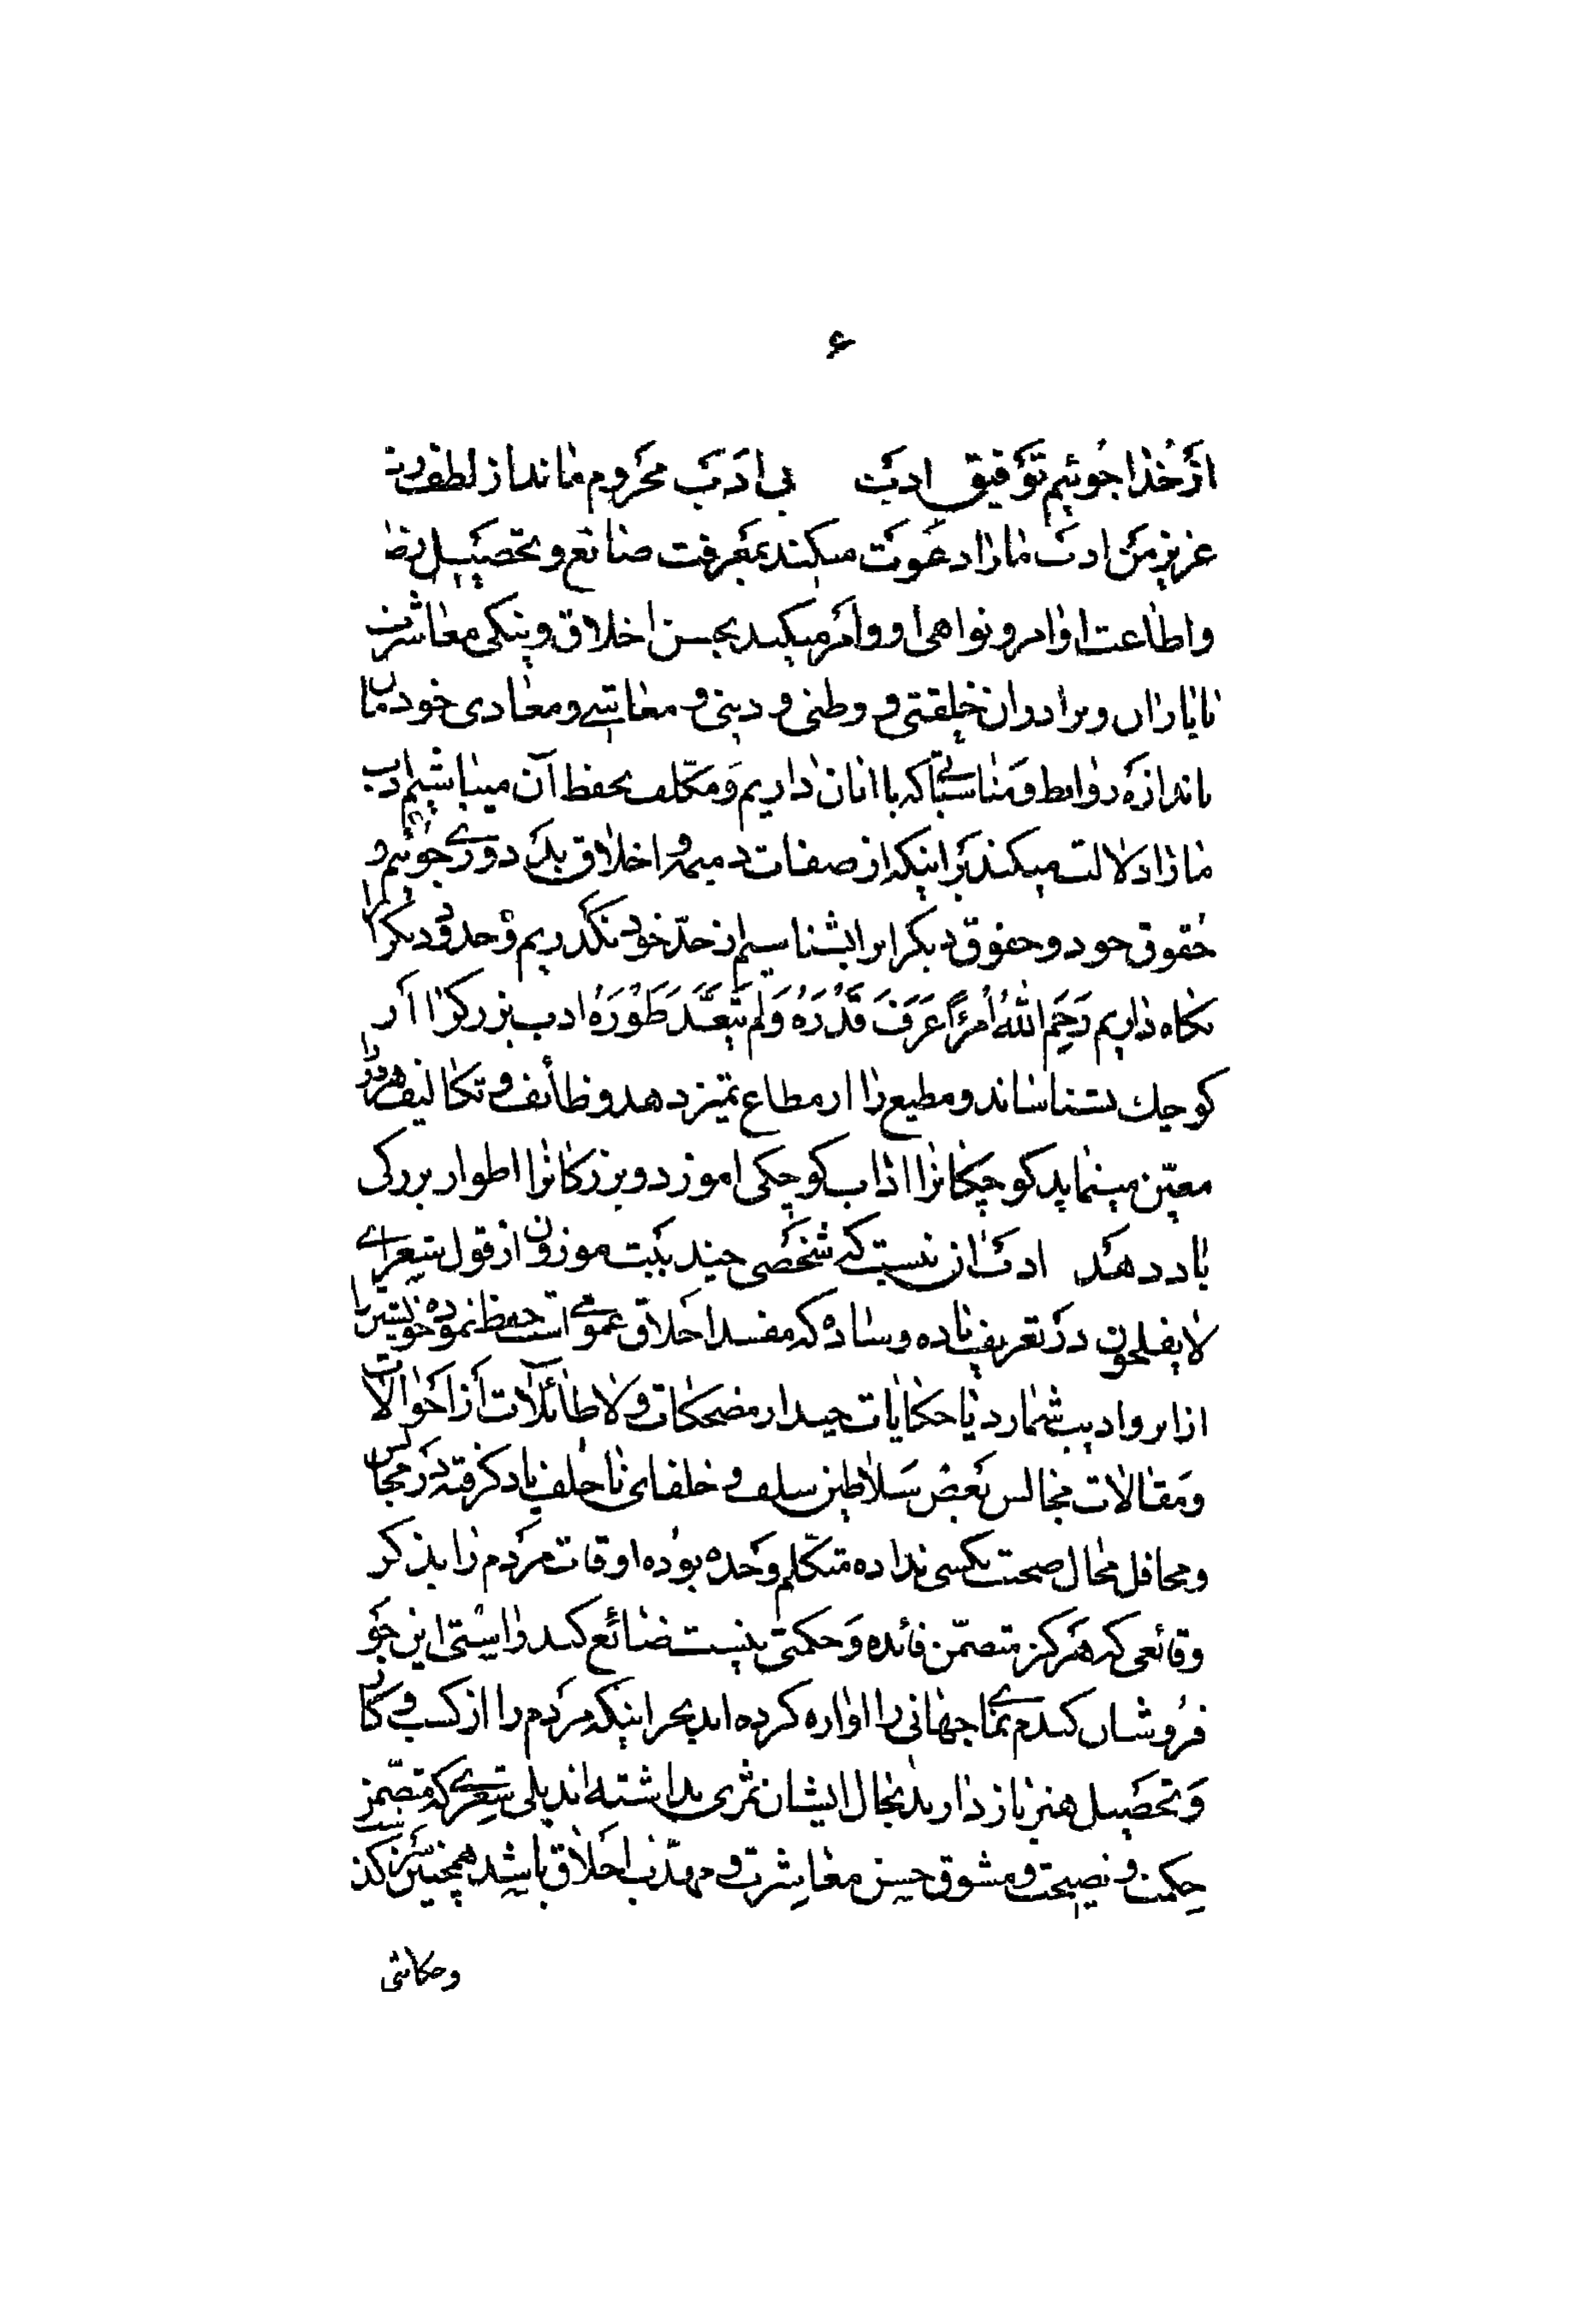 ۶
از خدا جوئیم توفیق ادب بی ادب محروم ماند از لطف رب
عزیز من ادب ما را دعوت میکند بمعرفت صانع و تحصیل رضا
و اطاعت اوامر و نواهی او و امر میکند بحسن اخلاق و نیکی معاشرت
با یاران و برادران خلقتی و وطنی و دینی و معاشی و معادی خودمان
باندازه روابط و مناسباتی که با آنان داریم و مکلف بحفظ آن میباشیم ادب
ما را دلالت میکند بر اینکه از صفات ذمیمه و اخلاق بد دوری جوئیم و
حقوق خود و حقوق دیگرانرا بشناسیم از حدّ خود نگذریم و حدود دیگرانرا
نگاه داریم رَحِمَ اللهُ اُمرَءًا عَرَفَ قَدْرَهُ وَلَم یَتَعَدَّ طَوْرَهُ ادب بزرگ را از
کوچک بشناساند و مطیع را از مطاع تمیز دهد وظائف و تکالیف هر دو را
معیّن مینماید کوچکانرا آداب کوچکی آموزد و بزرگانرا اطوار بزرگی
یاد دهد ادب آن نیست که شخصی چند بیت موزون از قول شعرای
لایفلحون در تعریف باده و ساده که مفسد اخلاق عمومی است حفظ نموده خویشتن را
از اینرو ادیب شمارد یا حکایات چند از مضحکات و لاطائلات از احوالات
و مقالات مجالس بعض سلاطین سلف و خلفای ناخلف یاد گرفته در مجالس
و محافل مجال صحبت بکسی نداده متکلّم وحده بوده اوقات مردم را بذکر
وقائعی که هرگز متضمّن فائده و حکمتی نیست ضائع کند راستی این جو
فروشان گندم نمای جهانی را آواره کرده‌اند بجز اینکه مردم را از کسب و کار
و تحصیل هنر باز دارند بحال ایشان ثمری نداشته‌اند بلی شعری که متضمّن
حکمت و نصیحت و مشوق حسن معاشرت و مهذّب اخلاق باشد همچنین
و حکایتی